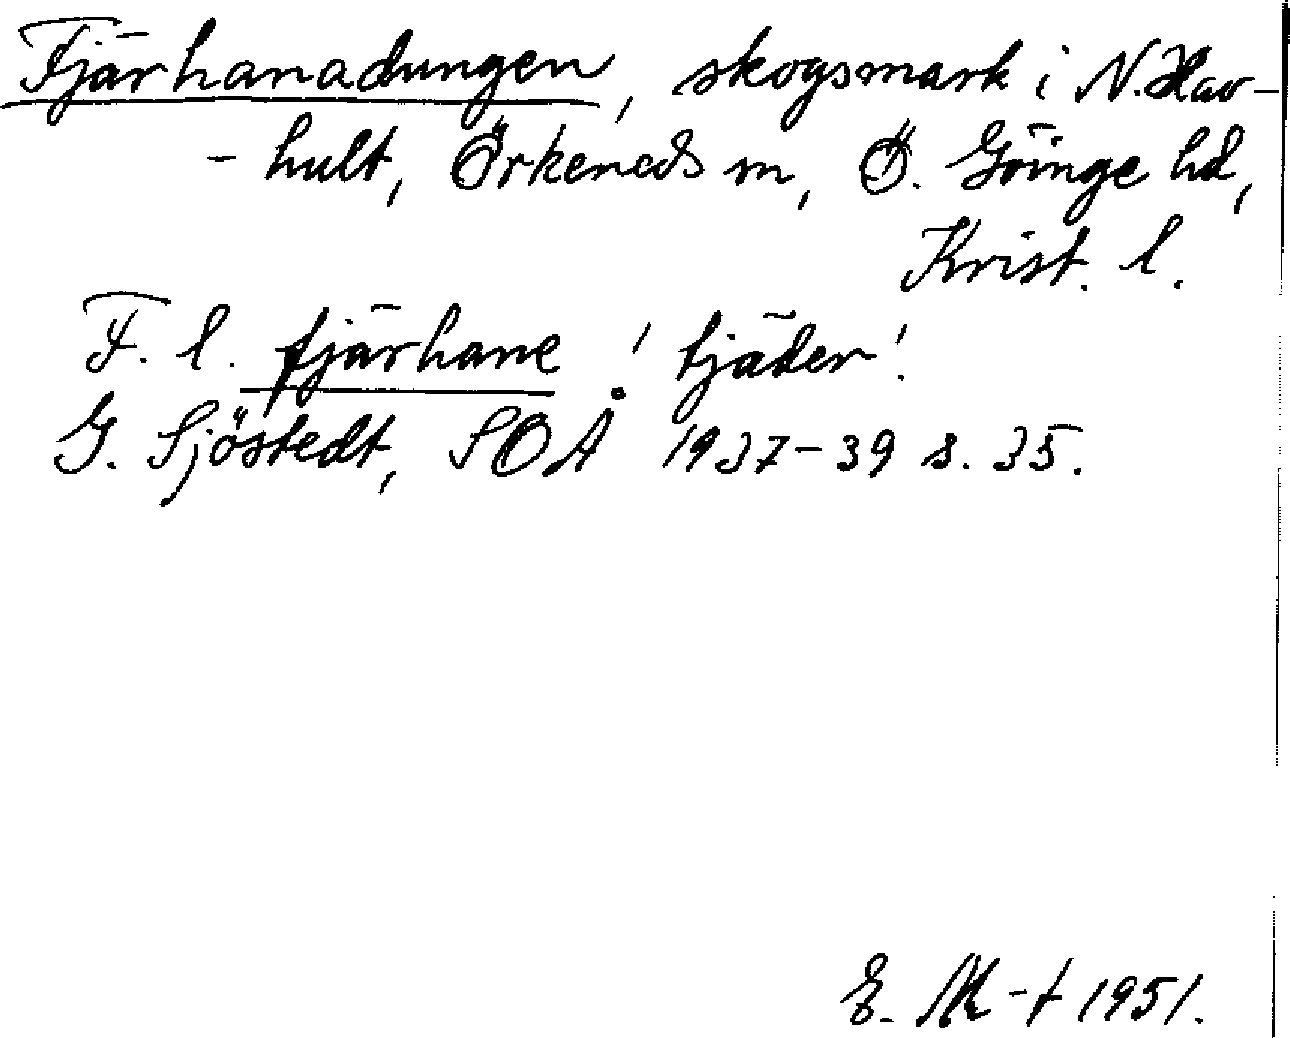 Fjärhanadungen, skogsmark i N. Hav-
- hult, Örkeneds sn, Ö. Göinge hd,
Krist. l.
F. l. fjärhane 'tjäder'.
G. Sjöstedt, SOÅ 1937-39 s. 35.
E. M-t 1951.